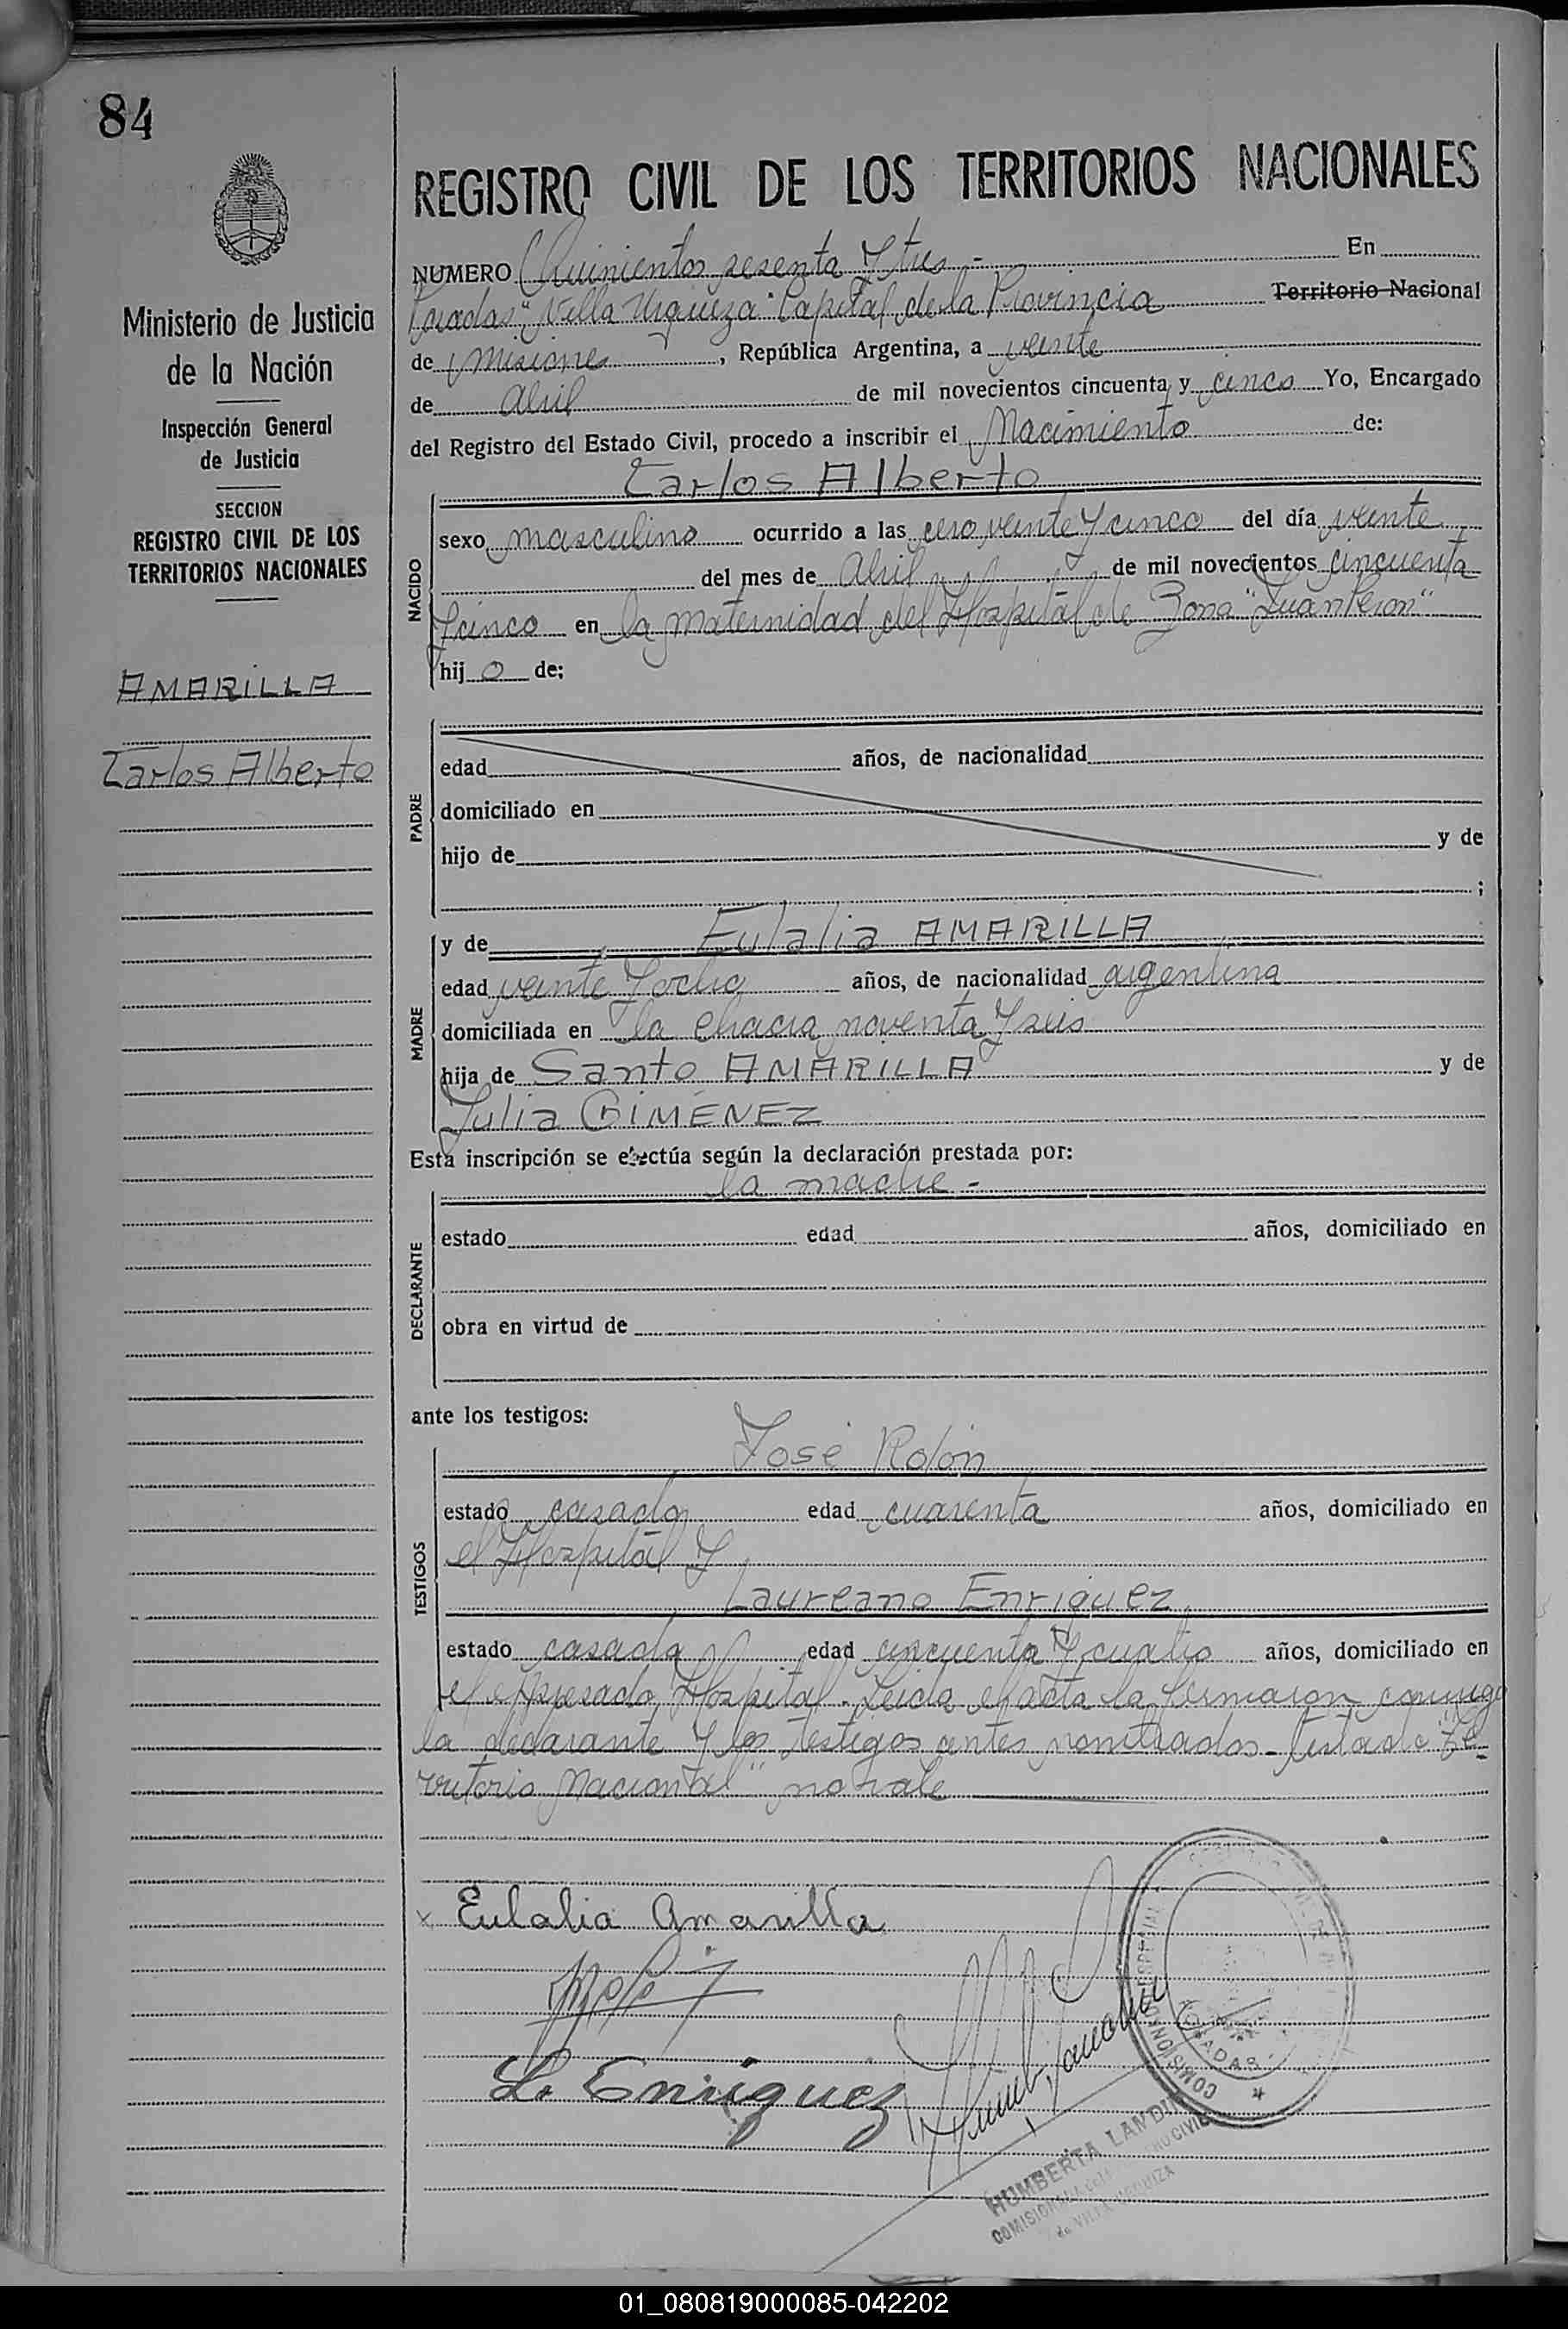 84
Ministerio de Justicia
de la Nación
Inspección General
de Justicia
SECCION
REGISTRO CIVIL DE LOS
TERRITORIOS NACIONALES
AMARILLA
Carlos Alberto
REGISTRO CIVIL DE LOS TERRITORIOS NACIONALES
NUMERO Quinientos sesenta y tres - En
Posadas "Villa Urquiza" Capital de la Provincia Territorio Nacional
de Misiones, República Argentina, a veinte
de Abril de mil novecientos cincuenta y cinco Yo, Encargado
del Registro del Estado Civil, procedo a inscribir el Nacimiento de:
Carlos Alberto
NACIDO
sexo masculino ocurrido a las cero veinte y cinco del día veinte
del mes de Abril de mil novecientos cincuenta
y cinco en la maternidad del Hospital de Zona "Juan Peron"
hijo de;
PADRE
edad años, de nacionalidad
domiciliado en
hijo de y de
;
MADRE
y de Eulalia AMARILLA
edad veinte y ocho años, de nacionalidad argentina
domiciliada en la chacra noventa y seis
hija de Santo AMARILLA y de
Julia GIMENEZ
Esta inscripción se efectúa según la declaración prestada por:
la madre -
DECLARANTE
estado edad años, domiciliado en
obra en virtud de
ante los testigos:
TESTIGOS
José Rolón
estado casado edad cuarenta años, domiciliado en
el Hospital y
Laureano Enriquez
estado casado edad cincuenta y cuatro años, domiciliado en
el expresado Hospital - Leida el acta la firmaron conmigo
la declarante y los testigos antes nombrados - Testado "Te-
rritorio Nacional" no vale
x Eulalia Amarilla
L. Enriquez
HUMBERTA
CIVIL
01_080819000085-042202